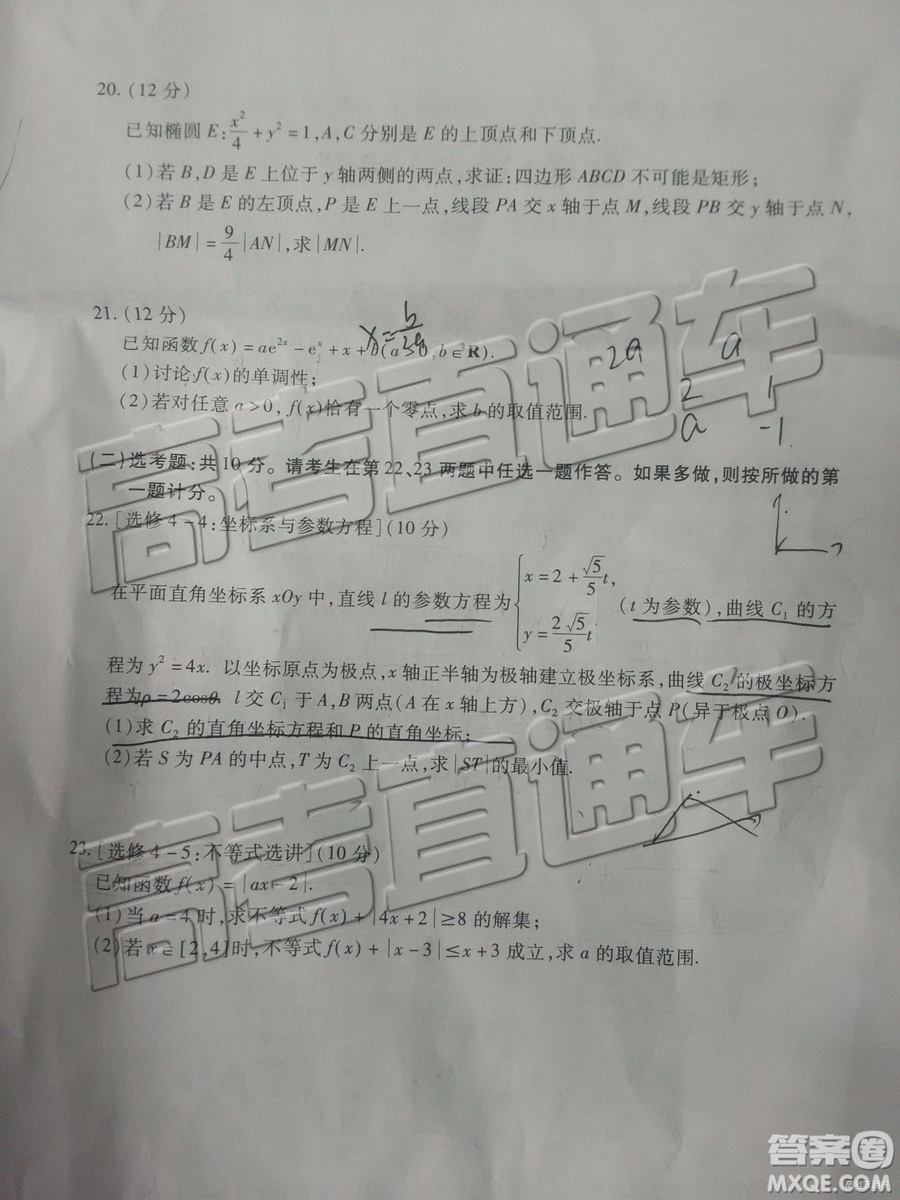 20. (12 分)
已知椭圆 E: x²/4 + y² = 1, A, C 分别是 E 的上顶点和下顶点.
(1) 若 B, D 是 E 上位于 y 轴两侧的两点, 求证: 四边形 ABCD 不可能是矩形;
(2) 若 B 是 E 的左顶点, P 是 E 上一点, 线段 PA 交 x 轴于点 M, 线段 PB 交 y 轴于点 N,
|BM| = 9/4 |AN|, 求 |MN|.
x = b/
2a a
21. (12 分)
已知函数 f(x) = ae^{2x} − e^x + x + (a, b ∈ R).
2 1
(1) 讨论 f(x) 的单调性;
(2) 若对任意 a > 0, f(x) 恰有一个零点, 求 b 的取值范围.
a -1
(二) 选考题: 共 10 分。请考生在第 22、23 两题中任选一题作答。如果多做, 则按所做的第
一题计分。
22. [选修 4-4: 坐标系与参数方程] (10 分)
在平面直角坐标系 xOy 中, 直线 l 的参数方程为 { x = 2 + √5/5 t, y = 2√5/5 t (t 为参数), 曲线 C₁ 的方
程为 y² = 4x. 以坐标原点为极点, x 轴正半轴为极轴建立极坐标系, 曲线 C₂ 的极坐标方
程为 ρ = 2cosθ. l 交 C₁ 于 A, B 两点 (A 在 x 轴上方), C₂ 交极轴于点 P (异于极点 O).
(1) 求 C₂ 的直角坐标方程和 P 的直角坐标;
(2) 若 S 为 PA 的中点, T 为 C₂ 上一点, 求 |ST| 的最小值.
23. [选修 4-5: 不等式选讲] (10 分)
已知函数 f(x) = |ax − 2|.
(1) 当 a = 4 时, 求不等式 f(x) + |4x + 2| ≥ 8 的解集;
(2) 若 x ∈ [2, 4] 时, 不等式 f(x) + |x − 3| ≤ x + 3 成立, 求 a 的取值范围.
高考直通车
高考直通车
答案圈
MXQE.COM